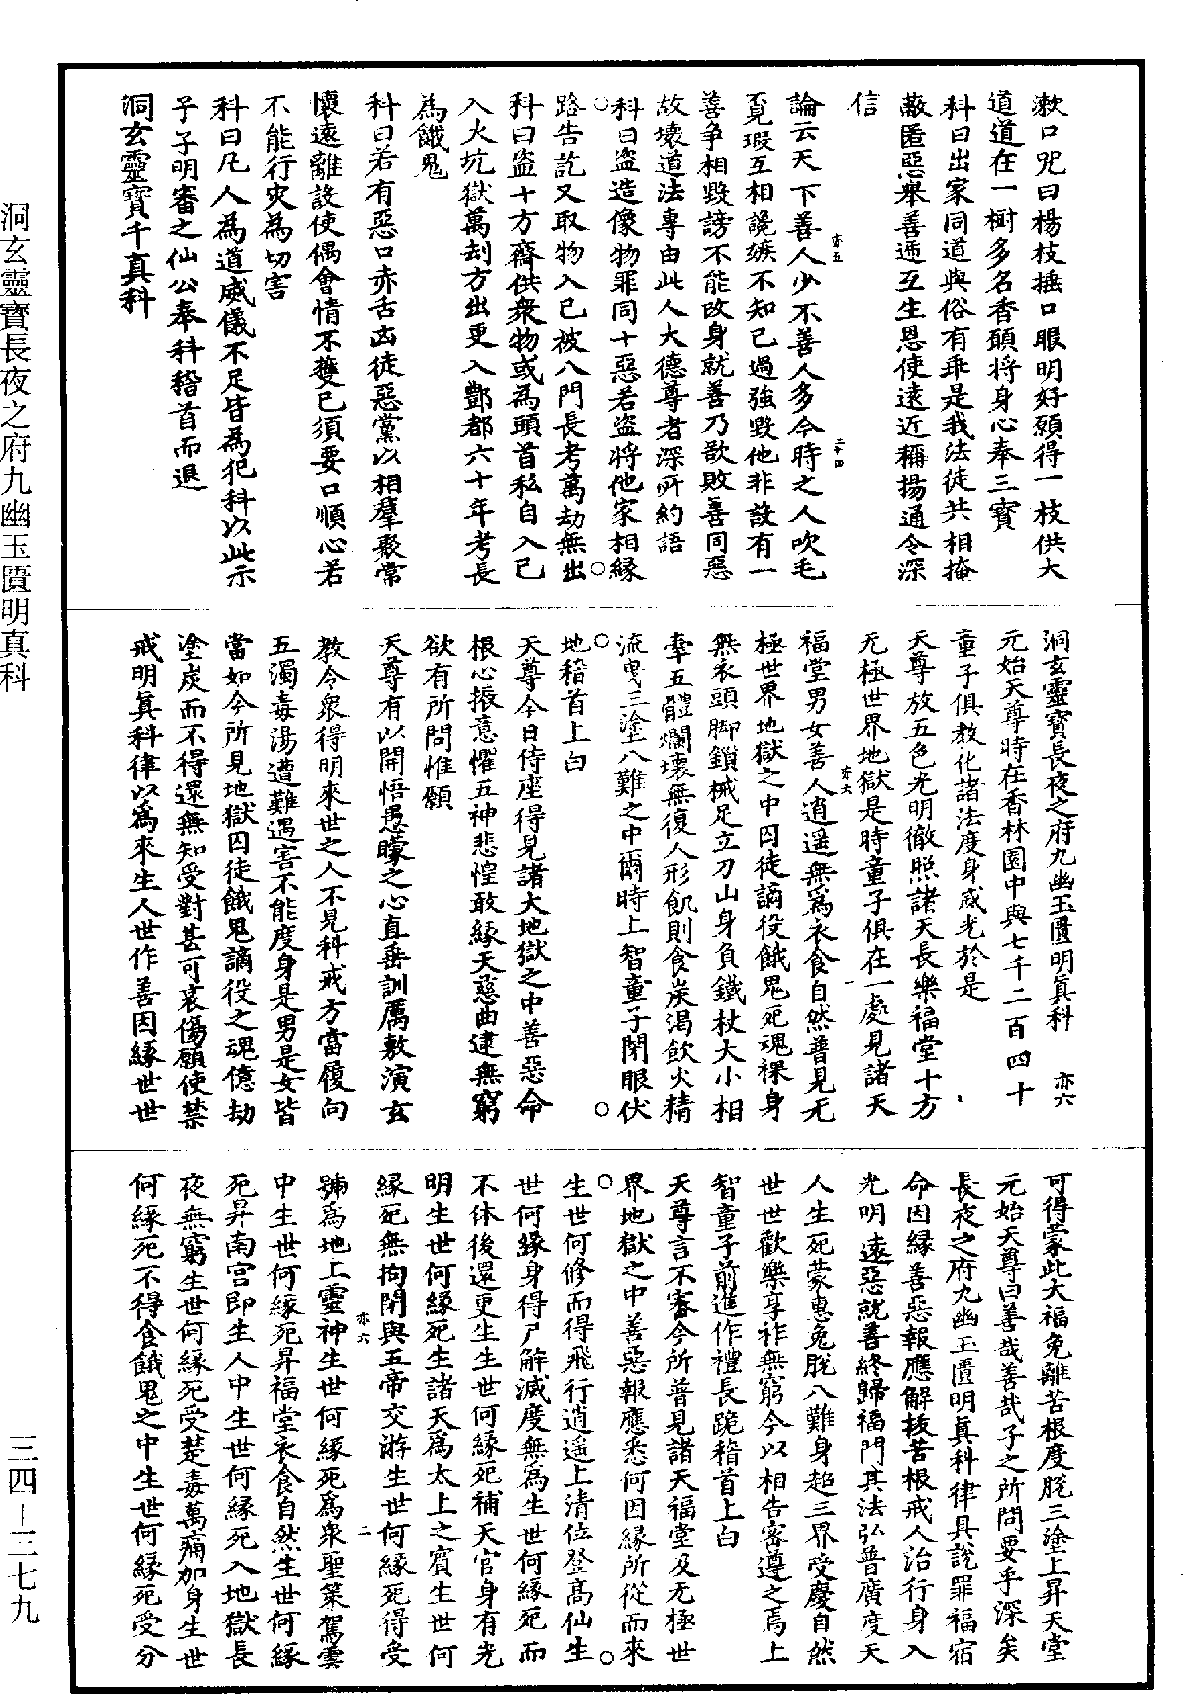 漱口呪曰楊枝㨪口眼明好願得一枝供大
道道在一樹多名香願將身心奉三寶
科曰出家同道與俗有乖是我法徒共相掩
蔽匿惡舉善遞互生恩使遠近稱揚通令深
信
亦五
二十四
論云天下善人少不善人多今時之人吹毛
覓瑕互相譏嫉不知己過強毀他非設有一
善爭相毀謗不能改身就善乃欲敗善同惡
故壞道法專由此人大德尊者深所約語
科曰盜造像物罪同十惡若盜將他家相緣
路告訖又取物入己被八門長考萬劫無出
科曰盜十方齋供衆物或為頭首私自入己
入火坑獄萬刦方出更入酆都六十年考長
為餓鬼
科曰若有惡口赤舌凶徒惡黨以相羣聚常
懷遠離設使偶會情不獲已須要口順心若
不能行灾為切害
科曰凡人為道威儀不足皆為犯科以此示
子子明審之仙公奉科稽首而退
洞玄靈寶千真科
洞玄靈寶長夜之府九幽玉匱明眞科 亦六
元始天尊時在香林園中與七千二百四十
童子俱教化諸法度身威光於是
天尊放五色光明徹照諸天長樂福堂十方
无極世界地獄是時童子俱在一處見諸天
亦六
一
福堂男女善人逍遥無爲衣食自然普見无
極世界地獄之中囚徒讁役餓鬼死魂裸身
無衣頭脚鎖械足立刀山身負鐵杖大小相
牽五體爛壞無復人形飢則食炭渴飲火精
流曳三塗八難之中爾時上智童子閉眼伏
地稽首上白
天尊今日侍座得見諸大地獄之中善惡命
根心振意懼五神悲惶敢緣天慈曲逮無窮
欲有所問惟願
天尊有以開悟愚矇之心直垂訓厲敷演玄
教令衆得明來世之人不見科戒方當履向
五濁毒湯遭難遇害不能度身是男是女皆
當如今所見地獄囚徒餓鬼讁役之魂億劫
塗炭而不得還無知受對甚可哀傷願使禁
戒明眞科律以爲來生人世作善因緣世世
可得蒙此大福免離苦根度脫三塗上昇天堂
元始天尊曰善哉善哉子之所問要乎深矣
長夜之府九幽玉匱明真科律具説罪福宿
命因緣善惡報應解拔苦根戒人治行身入
光明遠惡就善終歸福門其法弘普廣度天
人生死蒙惠免脫八難身超三界受慶自然
世世歡樂享祚無窮今以相告密遵之焉上
智童子前進作禮長跪稽首上白
天尊言不審今所普見諸天福堂及无極世
界地獄之中善惡報應悉何因緣所從而來
生世何修而得飛行逍遥上清位登高仙生
世何緣身得尸解滅度無爲生世何緣死而
不休後還更生生世何緣死補天官身有光
明生世何緣死生諸天爲太上之賓生世何
緣死無拘閉與五帝交游生世何緣死得受
亦六
二
號爲地上靈神生世何緣死爲衆聖策駕雲
中生世何緣死昇福堂衣食自然生世何緣
死昇南宮即生人中生世何緣死入地獄長
夜無窮生世何緣死受楚毒萬痛加身生世
何緣死不得食餓鬼之中生世何緣死受分
洞玄靈寶長夜之府九幽玉匱明真科
三四－三七九